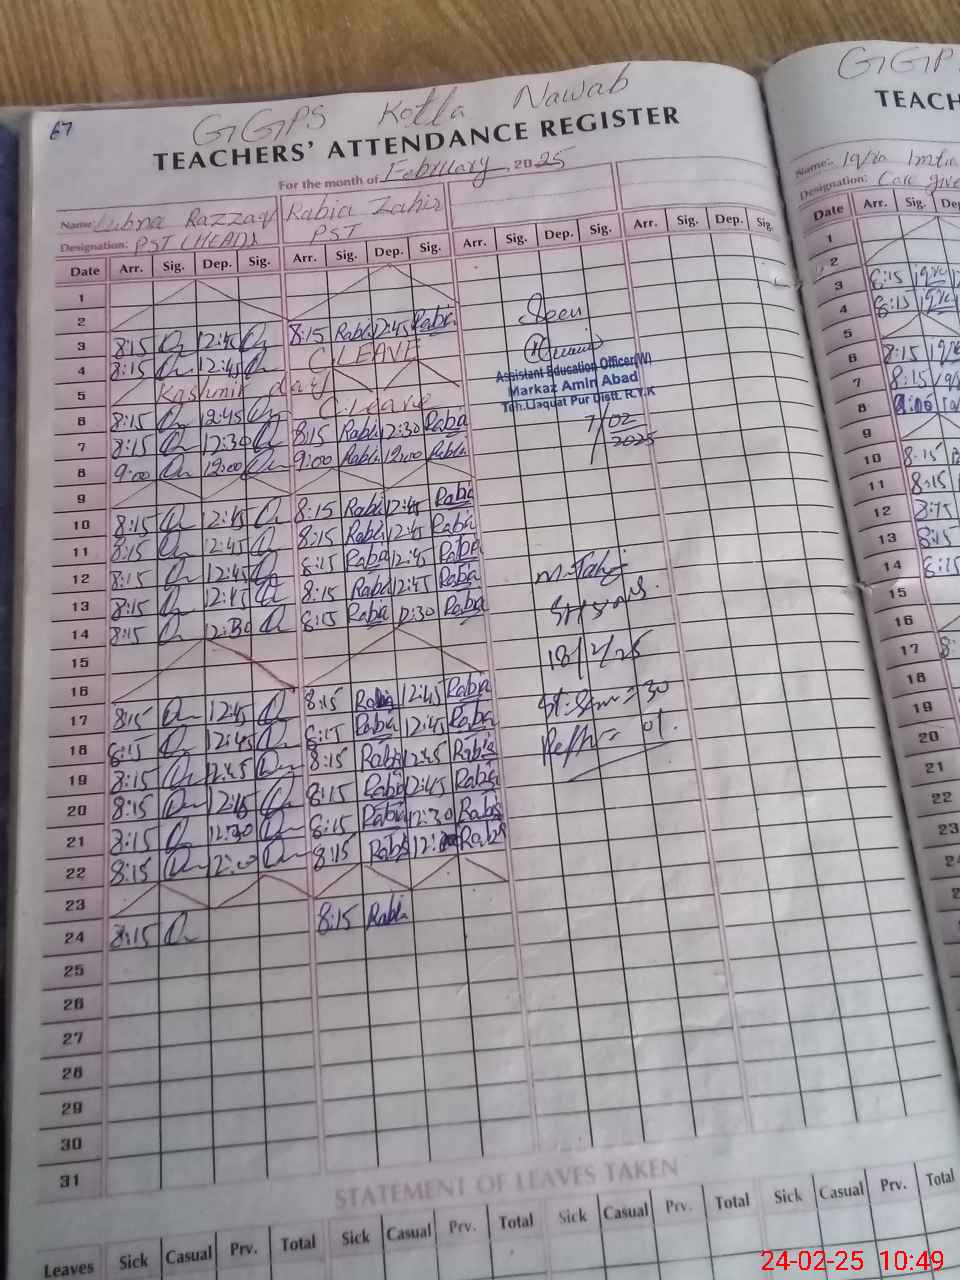 67
GGPS Kotla Nawab
TEACHERS' ATTENDANCE REGISTER
For the month of February, 2025
Name: Lubna Razzaq Rabia Zahir
Designation: PST (HEAD) PST
Date Arr. Sig. Dep. Sig. Arr. Sig. Dep. Sig. Arr. Sig. Dep. Sig. Arr. Sig. Dep. Sig.
1
2
3 8:15 12:45 8:15 Rabia 12:45 Rabia
4 8:15 12:45 C.LEAVE
5 Kashmir day
6 8:15 12:45 C.Leave
7 8:15 12:30 8:15 Rabia 12:30 Rabia
8 9:00 12:00 9:00 Rabia 12:00 Rabia
9
10 8:15 12:45 8:15 Rabia 12:45 Rabia
11 8:15 12:45 8:15 Rabia 12:45 Rabia
12 8:15 12:45 8:15 Rabia 12:45 Rabia
13 8:15 12:45 8:15 Rabia 12:45 Rabia
14 8:15 12:30 8:15 Rabia 12:30 Rabia
15
16
17 8:15 12:45 8:15 Rabia 12:45 Rabia
18 8:15 12:45 8:15 Rabia 12:45 Rabia
19 8:15 12:45 8:15 Rabia 12:45 Rabia
20 8:15 12:45 8:15 Rabia 12:45 Rabia
21 8:15 12:30 8:15 Rabia 12:30 Rabia
22 8:15 12:00 8:15 Rabia Rabia
23
24 8:15 8:15 Rabia
25
26
27
28
29
30
31
Seen
Assistant Education Officer(W)
Markaz Amin Abad
Teh.Liaquat Pur Distt. R.Y.K
7/02
2025
M. Tahir
18/2/25
STATEMENT OF LEAVES TAKEN
Leaves Sick Casual Prv. Total Sick Casual Prv. Total Sick Casual Prv. Total Sick Casual Prv. Total
GGPS
TEACH
Name:
Designation: Care give
Date Arr. Sig. Dep
1
2
3 8:15
4 8:15
5
6 8:15
7 8:15
8 9:00
9
10 8:15
11 8:15
12 8:15
13 8:15
14 8:15
15
16
17 8:
18
19
20
21
22
23
24-02-25 10:49